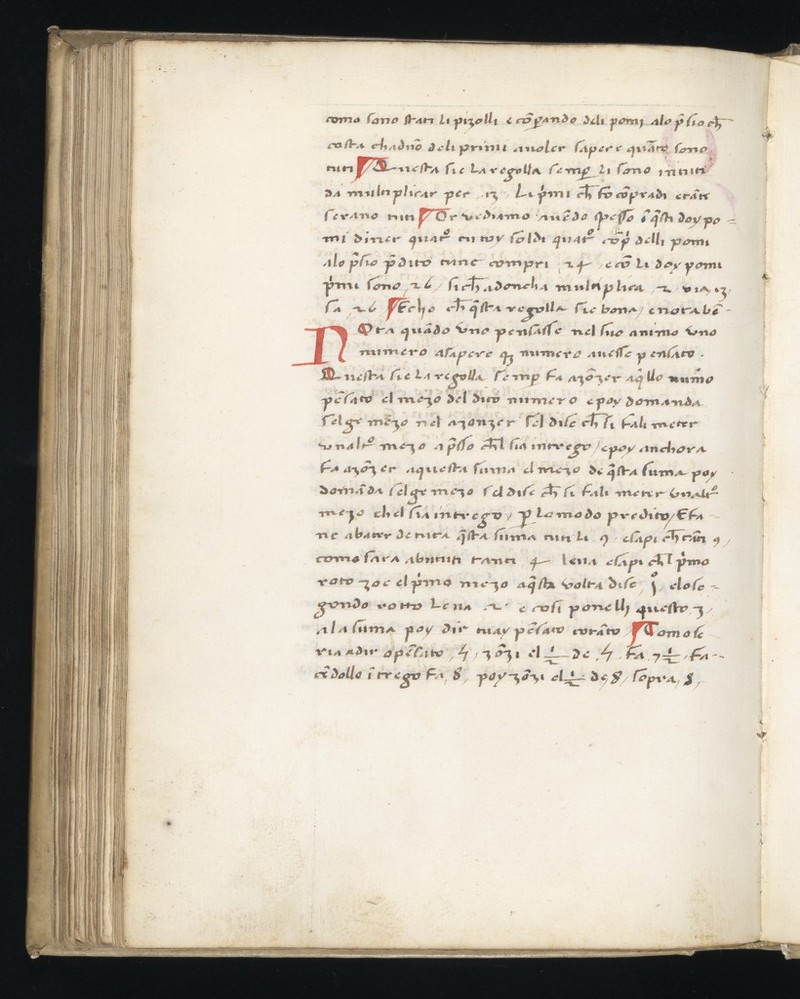 como sono stati li pizolli e cōparando deli pomi alo p̄sio ch̄
costa chaduno deli primi auoler sapere quāto sono
tuti Questa sie La regolla semp̄ li sono in tuti
da multiplicar per 13 Li p̄mi ch̄ fo cōpradi e tāte
serano tuti Or vediamo auēdo spesso ī q̄sti doy po=
mi diner quat° tu toy soldi quat° delli pomi
alo p̄sio p̄dito tu ne compri 24 e cō li doy pomi
p̄mi sono 26 sich̄ adoncha multiplica 2 via 13
fa 26 Echo ch̄ q̄sta regolla sie bona, e nota bē
NOta quādo vno pensasse nel suo animo vno
numero asapere q̄ numero auesse pensato.
Questa sie La regolla semp̄ fa azōzer aq̄llo num̄o
pēsato el mezo del dito numero e poy domanda
sel ge mēzo nel azonzer sel dise ch̄ si fali meter
vnalt° mezo ap̄sso ch̄l sia intrego, e poy anchora
fa azōzer aquesta suma el mezo de q̄sta suma poy
domāda sel ge mezo sel dise ch̄ si fali meter vnalt°
mezo chel sia intrego, p̄ Lo modo predito, E fa
ne abater de tuta q̄sta suma tuti li 9 e sapi ch̄ tāti 9
como sara abatuti tanti 4 leua e sapi ch̄l p̄mo
roto zoe el p̄mo mezo aq̄sta volta dise, 1°, elo se=
gondo rotto Leua 2 e cosi ponelli questo 3
ala suma poy dir tu ay pēsato cotāto Como se
ria adir o pēsato 5, zōzi el 1/2 de 5, fa 7 1/2, fa=
cēdollo ītrego fa 8, poy zōzi el 1/2 de 8, sopra 8,